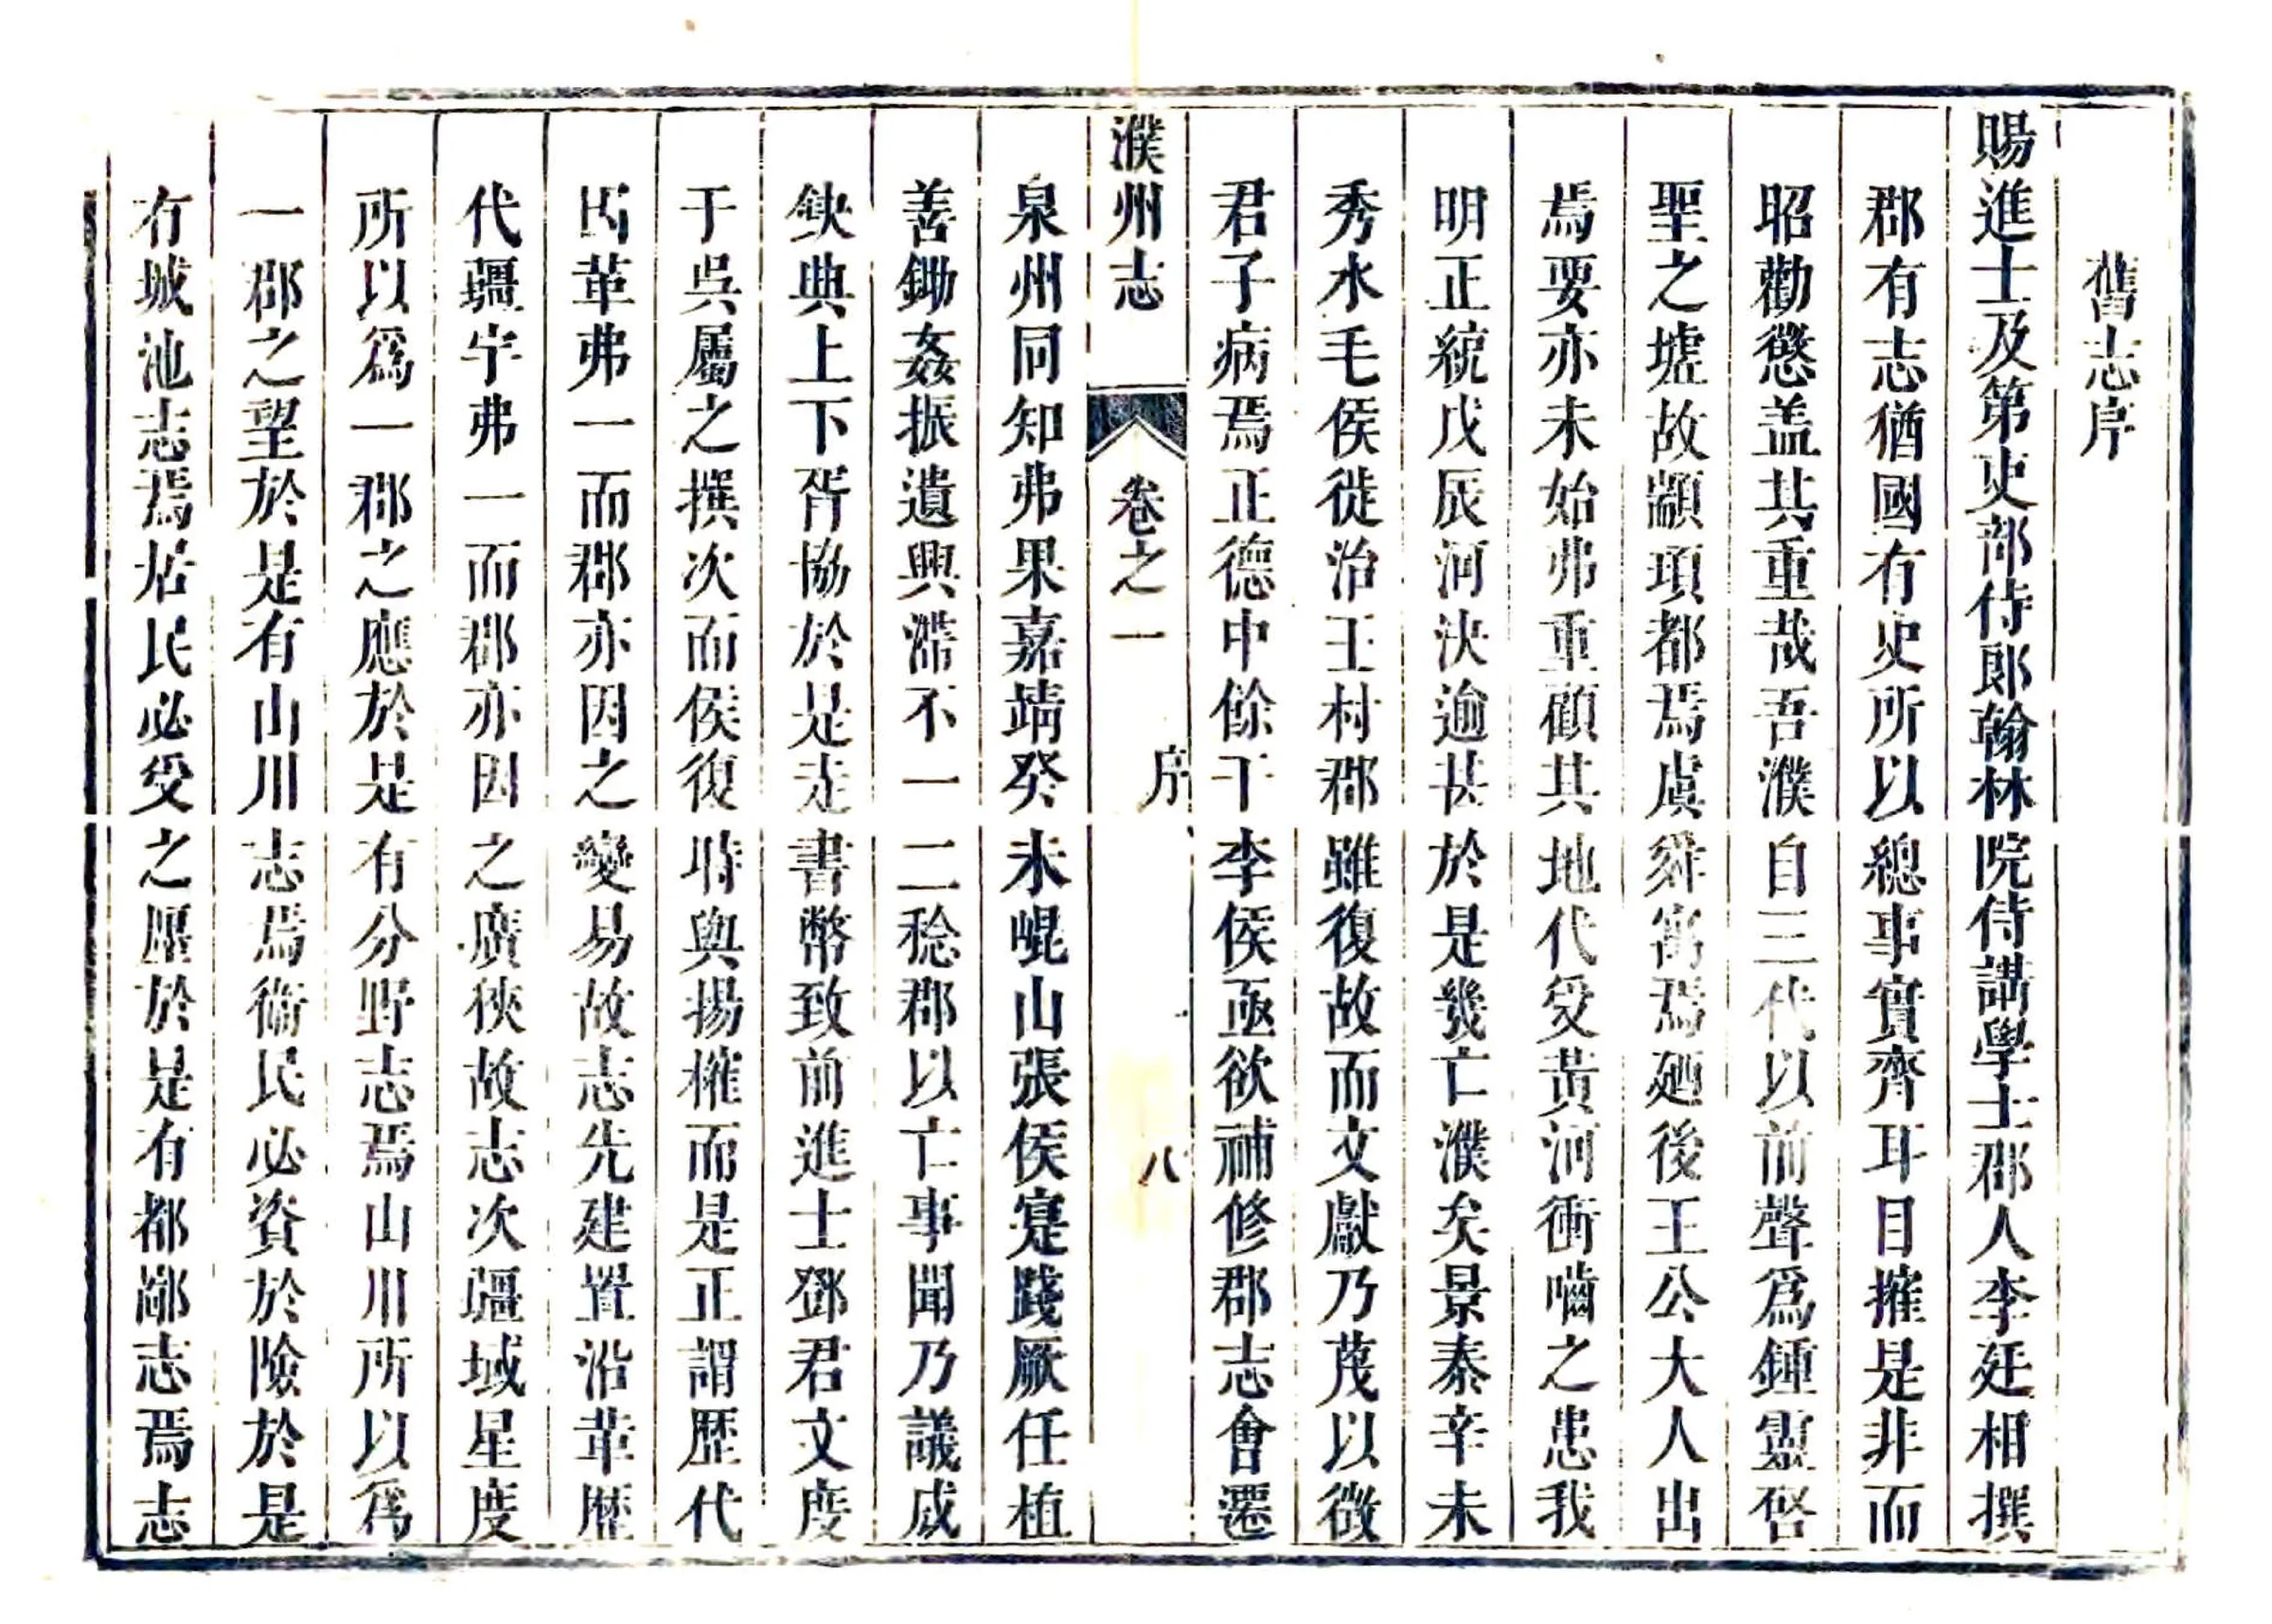 舊志序
賜進士及第吏部侍郎翰林院侍講學士郡人李廷相撰
郡有志猶國有史所以總事實齊耳目摧是非而
昭勸懲盖其重哉吾濮自三代以前聲爲鍾靈啓
聖之墟故顓頊都焉虞舜寓焉廼後王公大人出
焉要亦未始弗重顧其地代受黃河衝嚙之患我
明正統戊辰河決逾甚於是幾亡濮矣景泰辛未
秀水毛侯徙治王村郡雖復故而文獻乃茂以徵
君子病焉正德中餘干李侯亟欲補修郡志會遷
濮州志 卷之一 序 八
泉州同知弗果嘉靖癸未崐山張侯寔踐厥任植
善鋤姦振遺興滯不一二稔郡以亡事聞乃議咸
鈌典上下胥協於是走書幣致前進士鄧君文度
于吳屬之撰次而侯復時與揚搉而是正謂歷代
因革弗一而郡亦因之變易故志先建置沿革歷
代疆宇弗一而郡亦因之廣狹故志次疆域星度
所以爲一郡之應於是有分野志焉山川所以爲
一郡之望於是有山川志焉衞民必資於險於是
有城池志焉居民必受之廛於是有都鄙志焉志